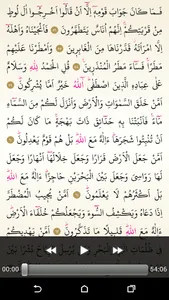 فَمَا كَانَ جَوَابَ قَوْمِهِ إِلَّا أَنْ قَالُوا أَخْرِجُوا آلَ لُوطٍ
مِنْ قَرْيَتِكُمْ إِنَّهُمْ أُنَاسٌ يَتَطَهَّرُونَ فَأَنْجَيْنَاهُ وَأَهْلَهُ
إِلَّا امْرَأَتَهُ قَدَّرْنَاهَا مِنَ الْغَابِرِينَ وَأَمْطَرْنَا عَلَيْهِمْ
مَطَرًا فَسَاءَ مَطَرُ الْمُنْذَرِينَ قُلِ الْحَمْدُ لِلَّهِ وَسَلَامٌ
عَلَى عِبَادِهِ الَّذِينَ اصْطَفَى آللَّهُ خَيْرٌ أَمَّا يُشْرِكُونَ
أَمَّنْ خَلَقَ السَّمَاوَاتِ وَالْأَرْضَ وَأَنْزَلَ لَكُمْ مِنَ
السَّمَاءِ مَاءً فَأَنْبَتْنَا بِهِ حَدَائِقَ ذَاتَ بَهْجَةٍ مَا كَانَ لَكُمْ
أَنْ تُنْبِتُوا شَجَرَهَا أَإِلَهٌ مَعَ اللَّهِ بَلْ هُمْ قَوْمٌ يَعْدِلُونَ
أَمَّنْ جَعَلَ الْأَرْضَ قَرَارًا وَجَعَلَ خِلَالَهَا أَنْهَارًا وَجَعَلَ
لَهَا رَوَاسِيَ وَجَعَلَ بَيْنَ الْبَحْرَيْنِ حَاجِزًا أَإِلَهٌ مَعَ اللَّهِ
بَلْ أَكْثَرُهُمْ لَا يَعْلَمُونَ أَمَّنْ يُجِيبُ الْمُضْطَرَّ
إِذَا دَعَاهُ وَيَكْشِفُ السُّوءَ وَيَجْعَلُكُمْ خُلَفَاءَ الْأَرْضِ
أَإِلَهٌ مَعَ اللَّهِ قَلِيلًا مَا تَذَكَّرُونَ أَمَّنْ يَهْدِيكُمْ
00:00 54:06